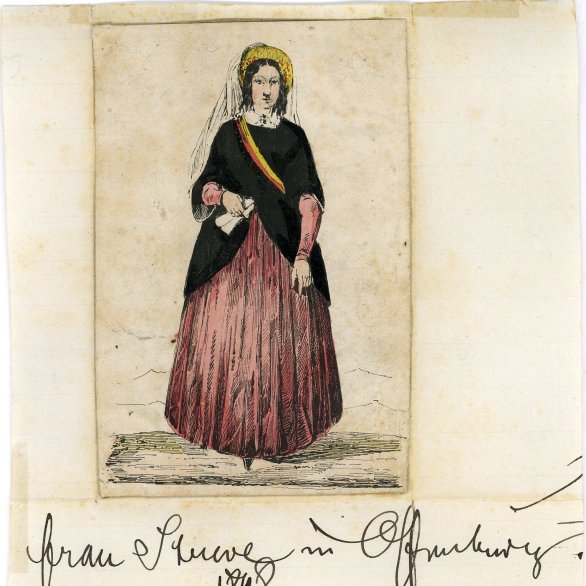 Frau Struve in Offenburg.
1848